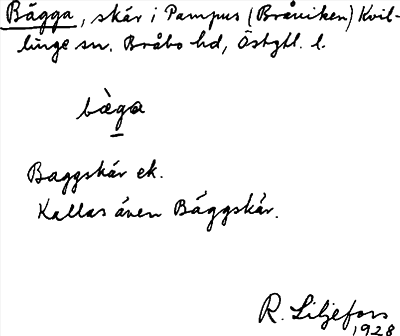 Bägga, skär i Pampus (Bråviken) Kvil-
linge sn. Bråbo hd, Östgtl. l.
bæ̀ga
Baggskär ek.
Kallas även Bäggskär.
R. Liljefors
1928